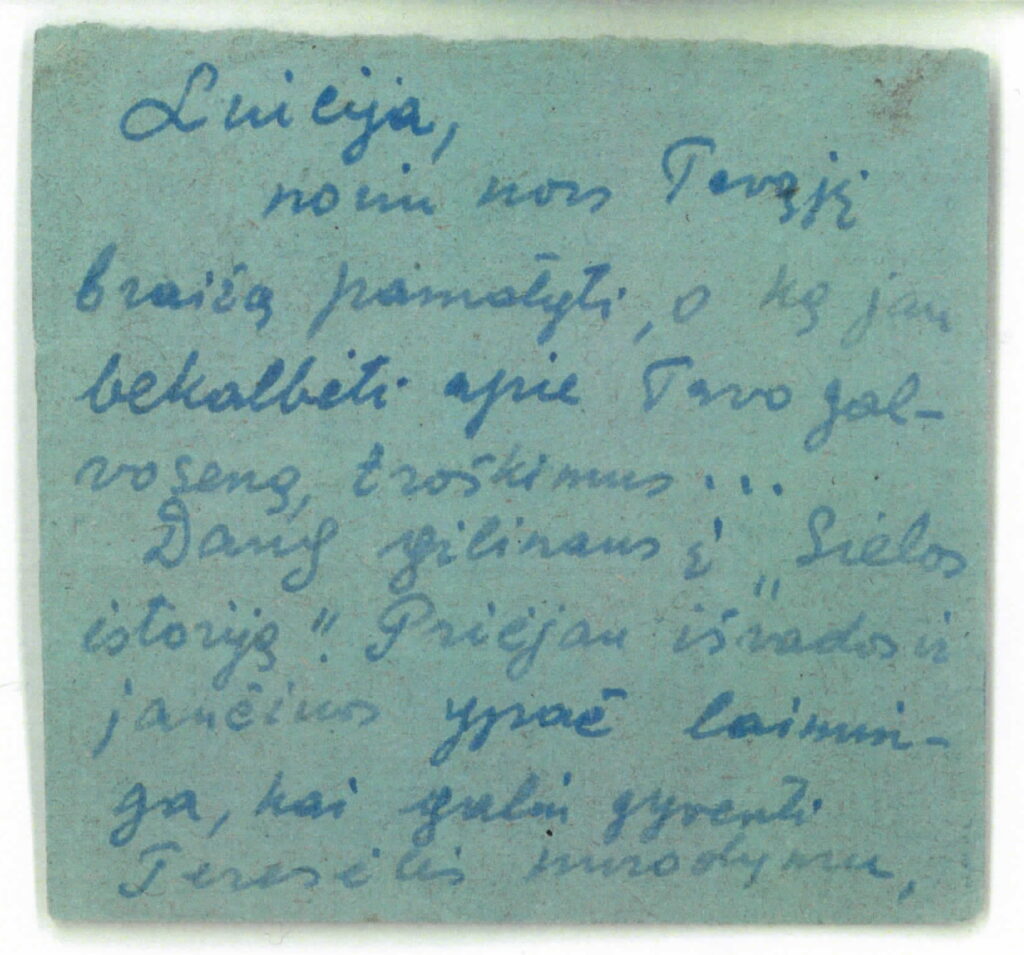 Liucija,
noriu nors Tavąjį
braižą pamatyti, o ką jau
bekalbėti apie Tavo gal-
voseną, troškimus...
Daug gilinaus į „Sielos
istoriją". Priėjau išvados ir
jaučiuos ypač laimin-
ga, kai galiu gyventi
Teresėlės nurodymu,